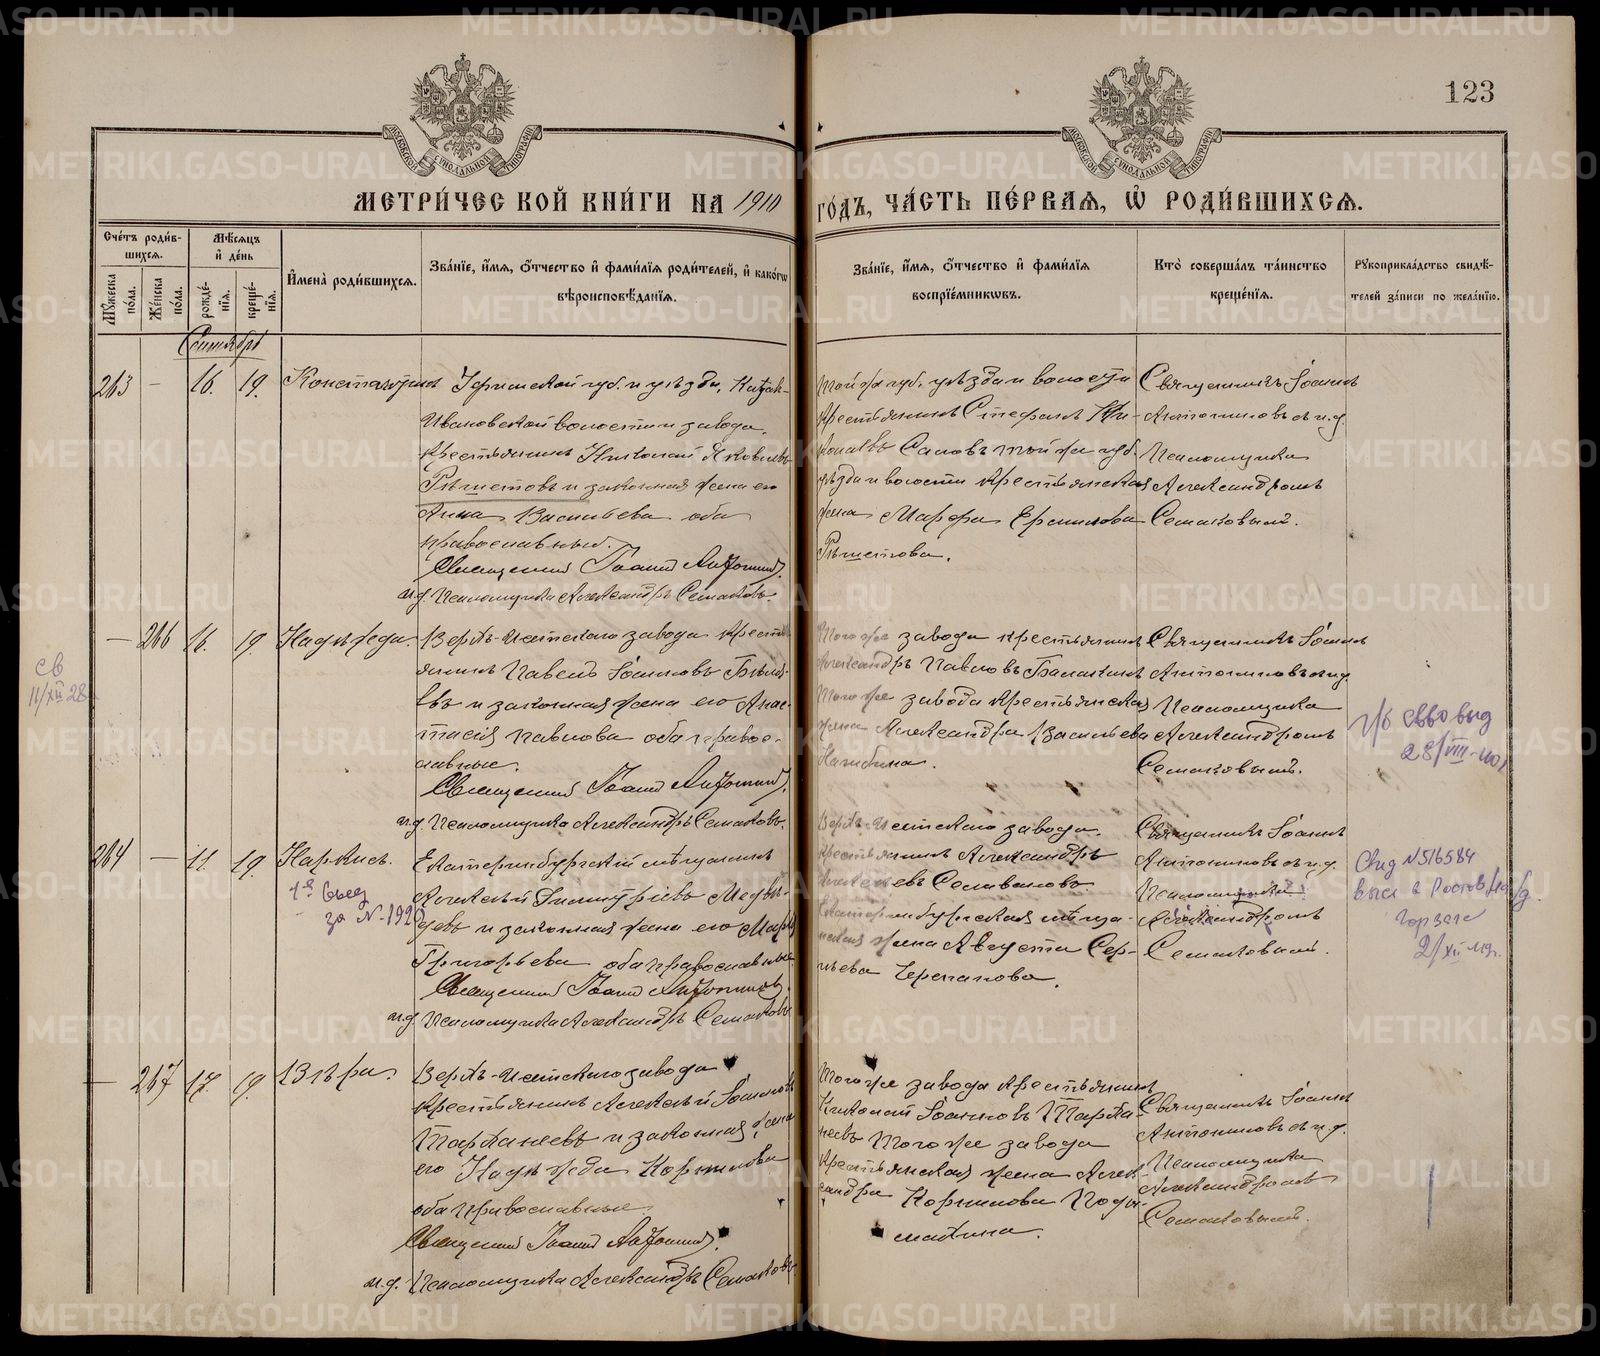 123
МОСКОВСКОЙ СѴНОДАЛЬНОЙ ТИПОГРАФІИ
МОСКОВСКОЙ СѴНОДАЛЬНОЙ ТИПОГРАФІИ
МЕТРИ́ЧЕСКОЙ КНИ́ГИ НА 1910 ГО́ДЪ, ЧА́СТЬ ПЕ́РВАЯ, Ѡ РОДИ́ВШИХСЯ.
Сче́тъ роди́в-
шихся.
Мꙋ́жеска по́ла.
Же́нска по́ла.
Мѣ́сяцъ
и҆ де́нь
рожде́нїя.
креще́нїя.
И҆мена̀ роди́вшихся.
Зва́нїе, и҆́мя, о҆́тчество и҆ фами́лїя роди́телей, и҆ како́гѡ
вѣроисповѣ́данїя.
Зва́нїе, и҆́мя, о҆́тчество и҆ фами́лїя
воспрїе́мникѡвъ.
Кто̀ соверша́лъ та́инство
креще́нїя.
Рꙋкоприкла́дство свидѣ́-
телей за́писи по жела́нїю.
Сентябрь
263 — 16. 19. Константинъ
Уфимской губ. и уѣзда, Катав-
Ивановской волости и завода,
крестьянинъ Николай Яковлевъ
Рѣшетовъ и законная жена его
Анна Васильева оба
православные.
Священникъ Іоаннъ Антониновъ.
и.д. Псаломщика Александръ Семаковъ.
Той же губ. уѣзда и волости
крестьянинъ Стефанъ
Саловъ той же губ.
уѣзда и волости крестьянская
жена Марфа Ермилова
Рѣшетова.
Священникъ Іоаннъ
Антониновъ съ и.д.
Псаломщика
Александромъ
Семаковымъ.
— 266 16. 19. Надежда.
Верхъ-Исетскаго завода кресть-
янинъ Павелъ Іоанновъ
и законная жена его Анас-
тасія Павлова оба право-
славные.
Священникъ Іоаннъ Антониновъ.
и.д. Псаломщика Александръ Семаковъ.
Того же завода крестьянинъ
Александръ Павловъ
Того же завода крестьянская
жена Александра Васильева
Священникъ Іоаннъ
Антониновъ съ и.д.
Псаломщика
Александромъ
Семаковымъ.
св
11/XII 28
28/VIII
264 — 11. 19. Наркисъ.
за № 1992
Екатеринбургскій мѣщанинъ
Алексѣй Димитріевъ Медвѣ-
девъ и законная жена его
Григорьева оба православные.
Священникъ Іоаннъ Антониновъ.
и.д. Псаломщика Александръ Семаковъ
Верхъ-Исетскаго завода.
крестьянинъ Александръ
Селивановъ
Екатеринбургская мѣща-
нская жена Августа Сер-
гѣева Черепанова.
Священникъ Іоаннъ
Антониновъ съ и.д.
Псаломщика
Александромъ
Семаковымъ.
Свид № 516584
2/XII
— 267 17. 19. Вѣра.
Верхъ-Исетскаго завода
крестьянинъ Алексѣй Іоанновъ
и законная жена
его Надежда Корнилова
оба православные
Священникъ Іоаннъ Антониновъ.
и.д. Псаломщика Александръ Семаковъ.
Того же завода крестьянинъ
Николай Іоанновъ
Того же завода
крестьянская жена Алек-
сандра Корнилова
Священникъ Іоаннъ
Антониновъ съ и.д.
Псаломщика
Александромъ
Семаковымъ.
METRIKI.GASO-URAL.RU